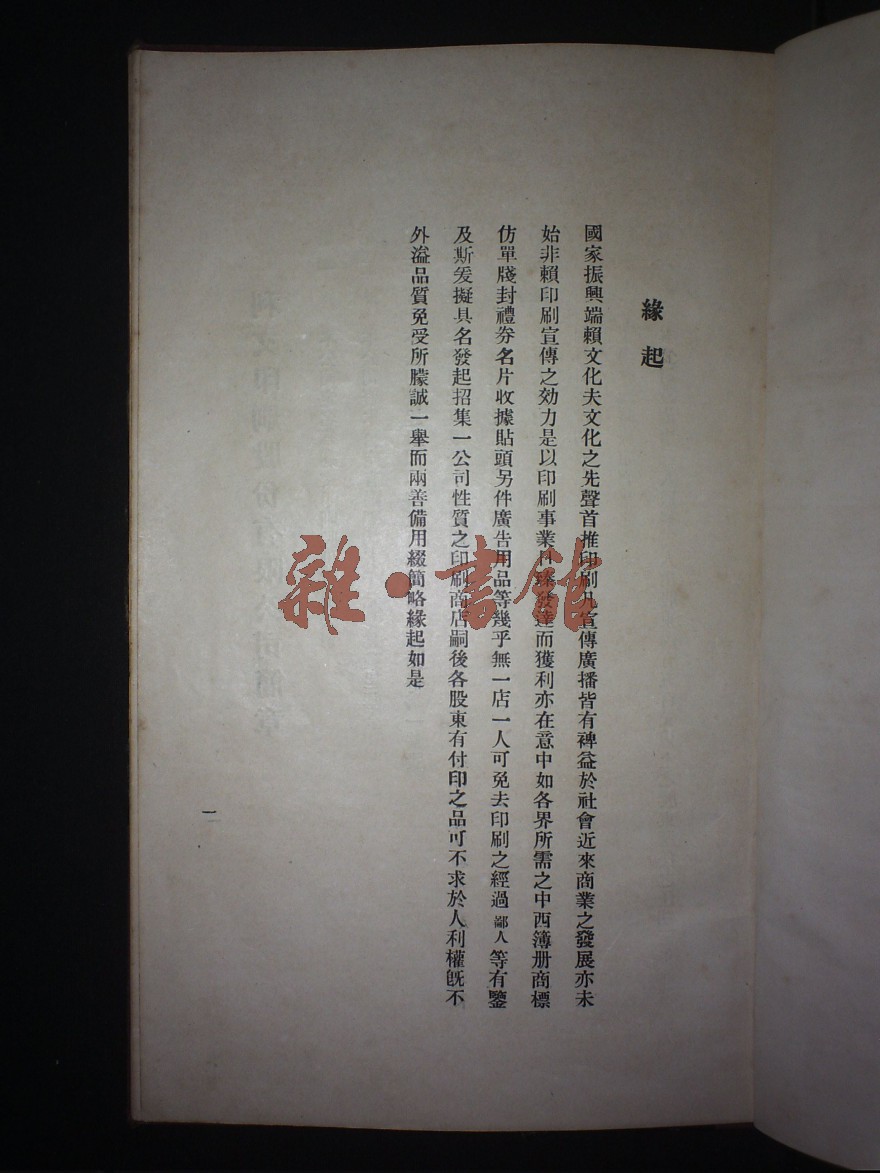 緣起
國家振興端賴文化夫文化之先聲首推印刷凡宣傳廣播皆有裨益於社會近來商業之發展亦未
始非賴印刷宣傳之効力是以印刷事業日臻發達而獲利亦在意中如各界所需之中西簿册商標
仿單牋封禮券名片收據貼頭另件廣告用品等幾乎無一店一人可免去印刷之經過鄙人等有鑒
及斯爰擬具名發起招集一公司性質之印刷商店嗣後各股東有付印之品可不求於人利權旣不
外溢品質免受所朦誠一舉而兩善備用綴簡略緣起如是
一
雜·書館